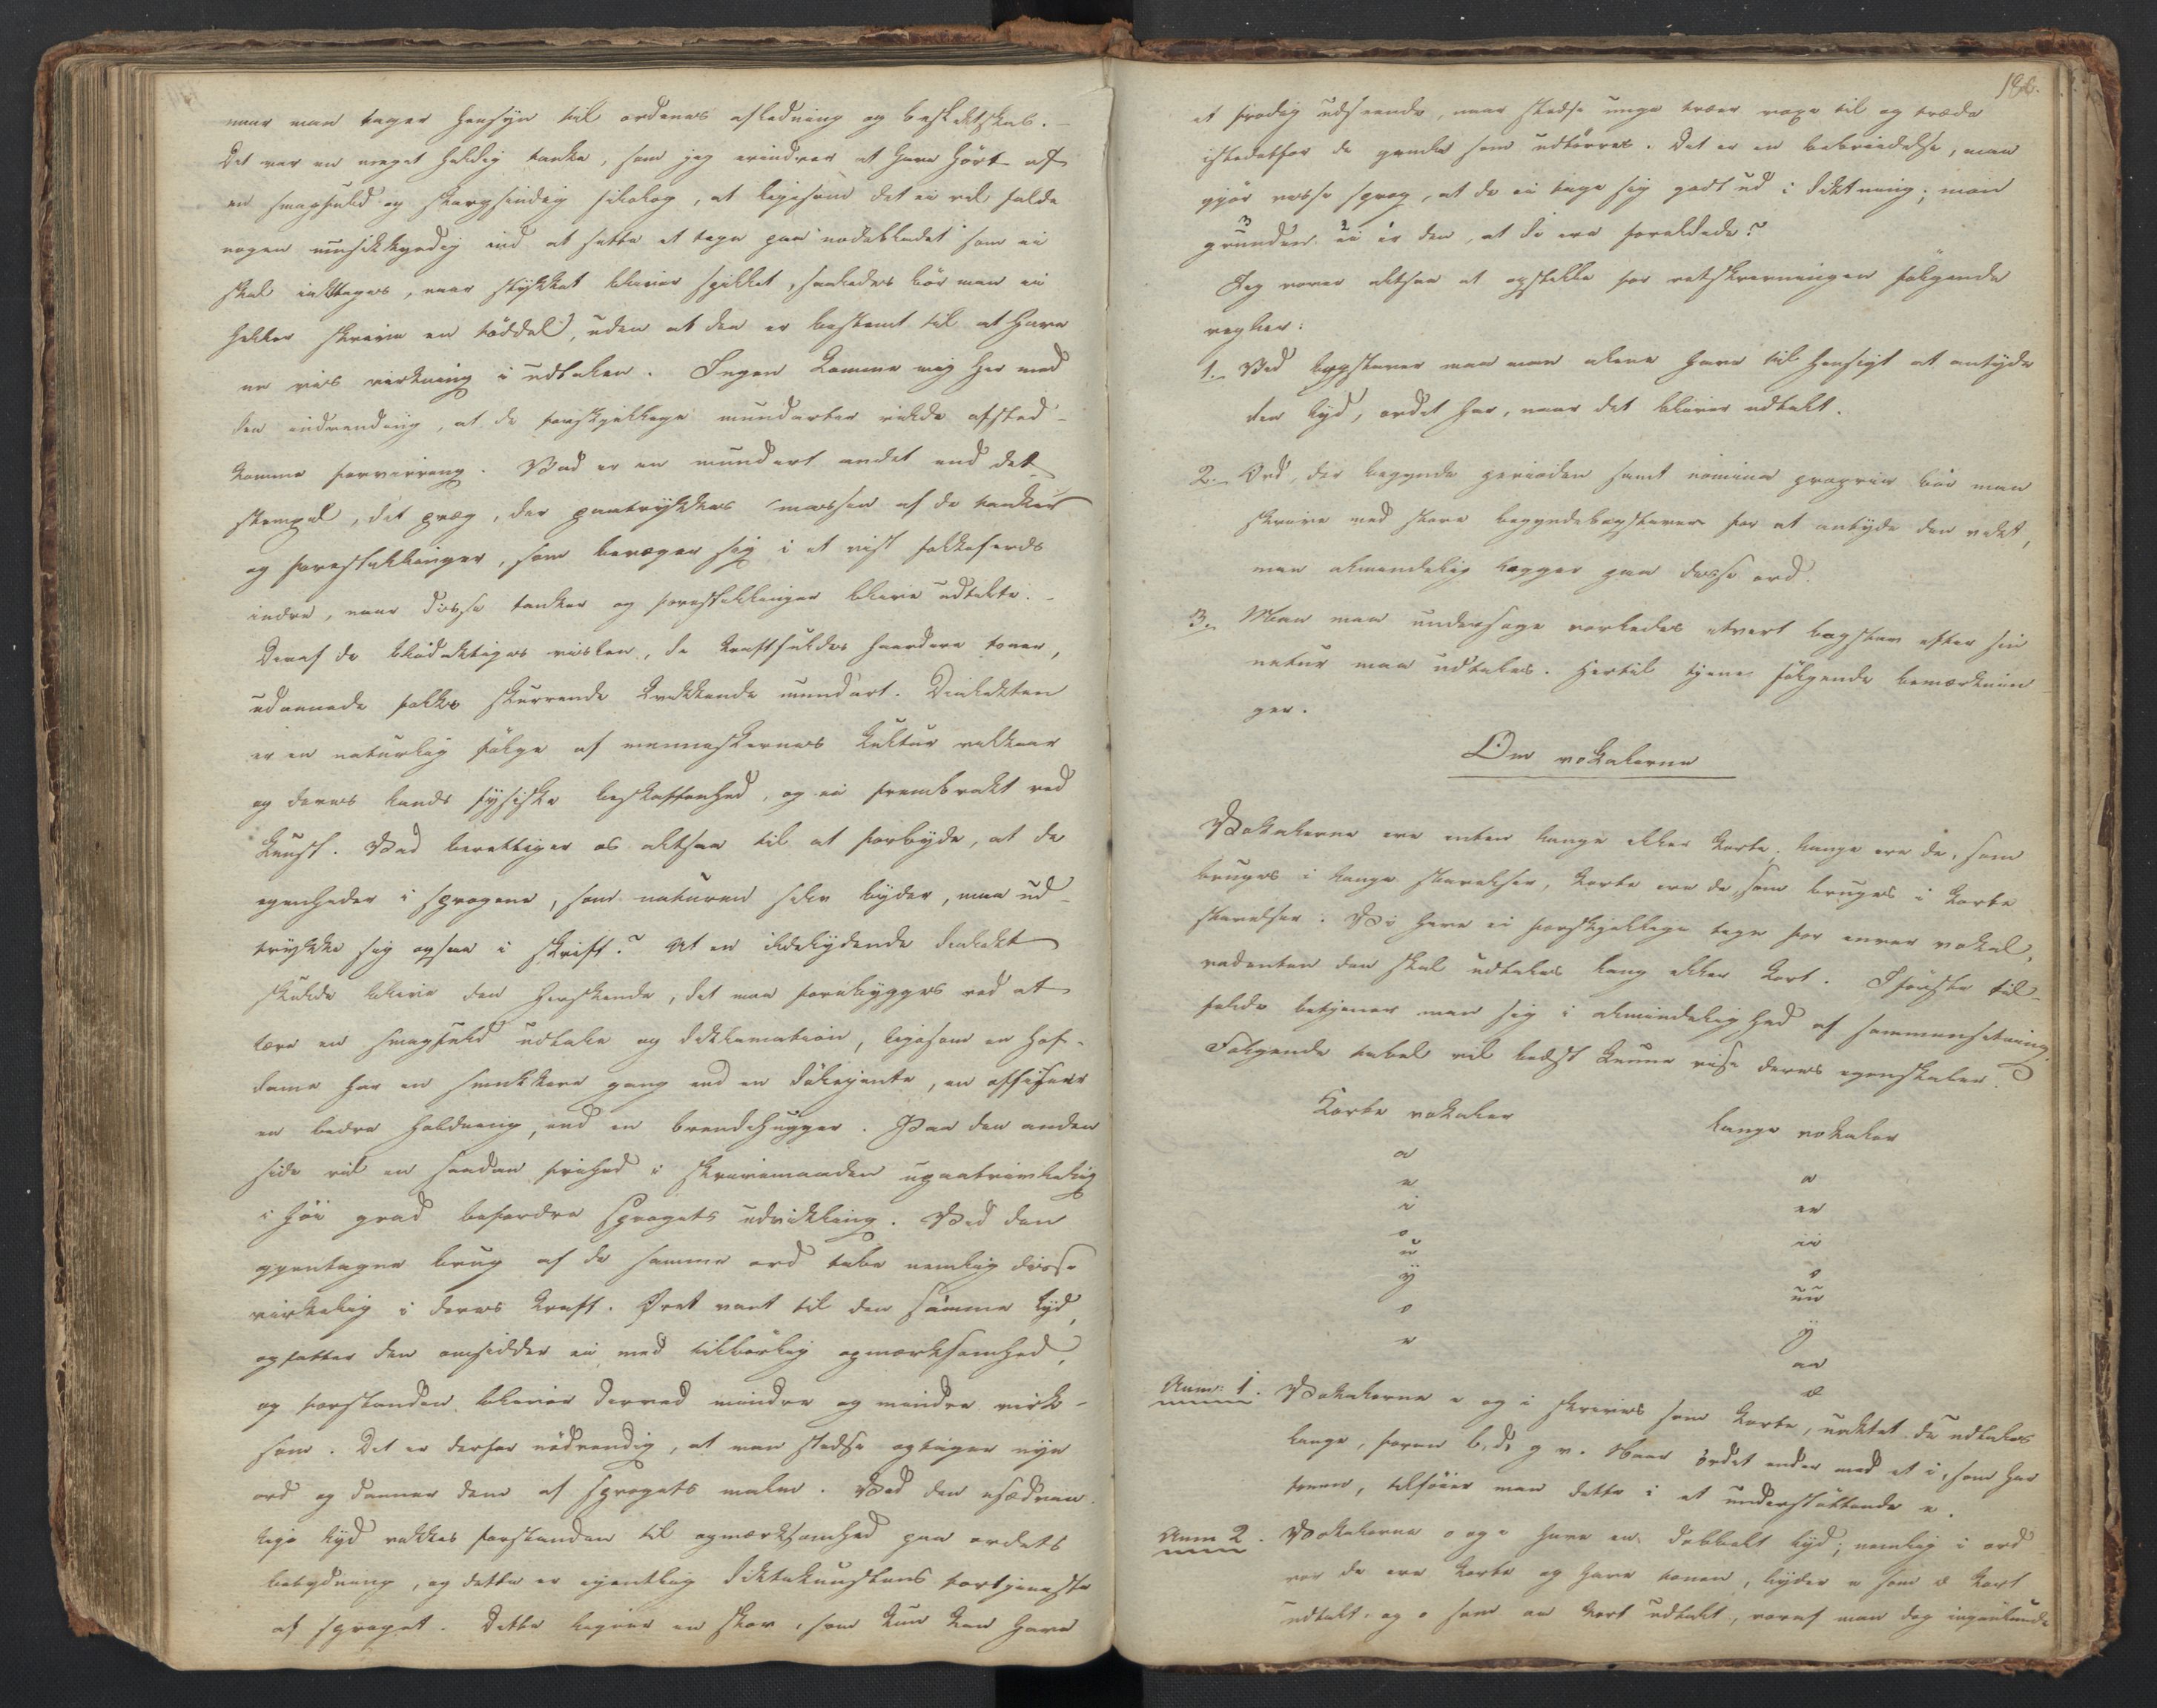 naar man tager hensyn til ordenes afledning og beslektskab. –
Det var en meget heldig tanke, som jeg erindrer at have hört af
en smagfuld og skarpsindig filolog, at ligesom det ei vil falde
nogen musikkyndig ind at sette et tegn paa nodebladet som ei
skal iakttages, naar stykket bliver spillet, saaledes bör man ei
heller skrive en töddel, uden at den er bestemt til at have
en vis virkning i udtalen. Ingen komme mig her med
den indvending, at de forskjellige mundarter vilde afsted-
komme forvirring. Vad er en mundart andet end det
stempel, det preg, der paatrykkes massen af de tanker
og forestillinger, som beveger sig i et vist folkeferds
indre, naar disse tanker og forestillinger blive udtalte. –
Deraf de blödaktiges vislen, de kraftfuldes haardere toner,
udannede folks skurrende brekkende mundart. Dialekten
er en naturlig fölge af menneskernes kultur vilkaar
og deres lands fysiske beskaffenhed, og ei frembrakt ved
kunst. Vad berettiger os altsaa til at forbyde, at de
egenheder i sprogene, som naturen selv byder, maa ud-
trykke sig ogsaa i skrift? At en ildelydende dialekt
skulde blive den herskende, det maa forebygges ved at
lere en smagfuld udtale og deklamation, ligesom en hof-
dame har en smukkere gang end en döllejente, en offiser
en bedre holdning, end en brendehugger. Paa den anden
side vil en saadan frihed i skrivemaaden upaatvivlelig
i höi grad befordre sprogets udvikling. Ved den
gjentagne brug af de samme ord tabe nemlig disse
virkelig i deres kraft. Öret vant til den samme lyd,
opfatter den omsidder ei med tilbörlig opmerksomhed,
og forstanden bliver derved mindre og mindre virk-
som. Det er derfor nödvendig, at man stedse optager nye
ord og danner dem af sprogets malm. Ved den usedvan-
lige lyd vekkes forstanden til opmerksomhed paa ordets
betydning, og dette er egentlig diktekunstens fortjeneste
af sproget. Dette ligner en skov, som kun kan have
186.
et frodig udseende, naar stedse unge treer voxe til og træde
istedetfor de gamle som udtörres. Det er en bebreidelse, man
gjör vosse sprog, at de ei tage sig godt ud i diktning; mon
grunden ei er den, at de ere foreldede?
3 2
Jeg vover altsaa at opstille for retskrivningen fölgende
regler:
1. Ved bogstaver maa man alene have til hensigt at antyde
den lyd, ordet har, naar det bliver udtalt.
2. Ord, der begynde perioden samt nomina propria bör man
skrive med store begyndelsebogstaver for at antyde den vekt,
man almindelig legger paa disse ord.
3. Maa man undersöge vorledes etvert bogstav efter sin
natur maa udtales. Hertil tjene fölgende bemerknin-
ger.
Om vokalerne
Vokalerne ere enten lange eller korte. lange ere de, som
bruges i lange stavelser, korte ere de, som bruges i korte
stavelser. Vi have ei forskjellige tegn for enver vokal,
vadenten den skal udtales lang eller kort. I förste til-
felde betjener man sig i almindelighed af sammensetning.
Fölgende tabel vil bedst kunne vise deres egenskaber.
Korte vokaler
lange vokaler
a
a
e
ee
i
ii
o
o
u
uu
y
y
o
aa
e
æ
Anm: 1. Vokalerne e og i skrives som korte, uaktet de udtales
lange, foran b, d, g v. Naar ordet ender med et i, som har
tonen, tilföier man dette i et understöttende e.
Anm 2. Vokalerne o og e have en dobbelt lyd; nemlig i ord
vor de ere korte og have tonen, lyder e som æ kort
udtalt, og o som aa kort udtalt, voraf man dog ingenlunde